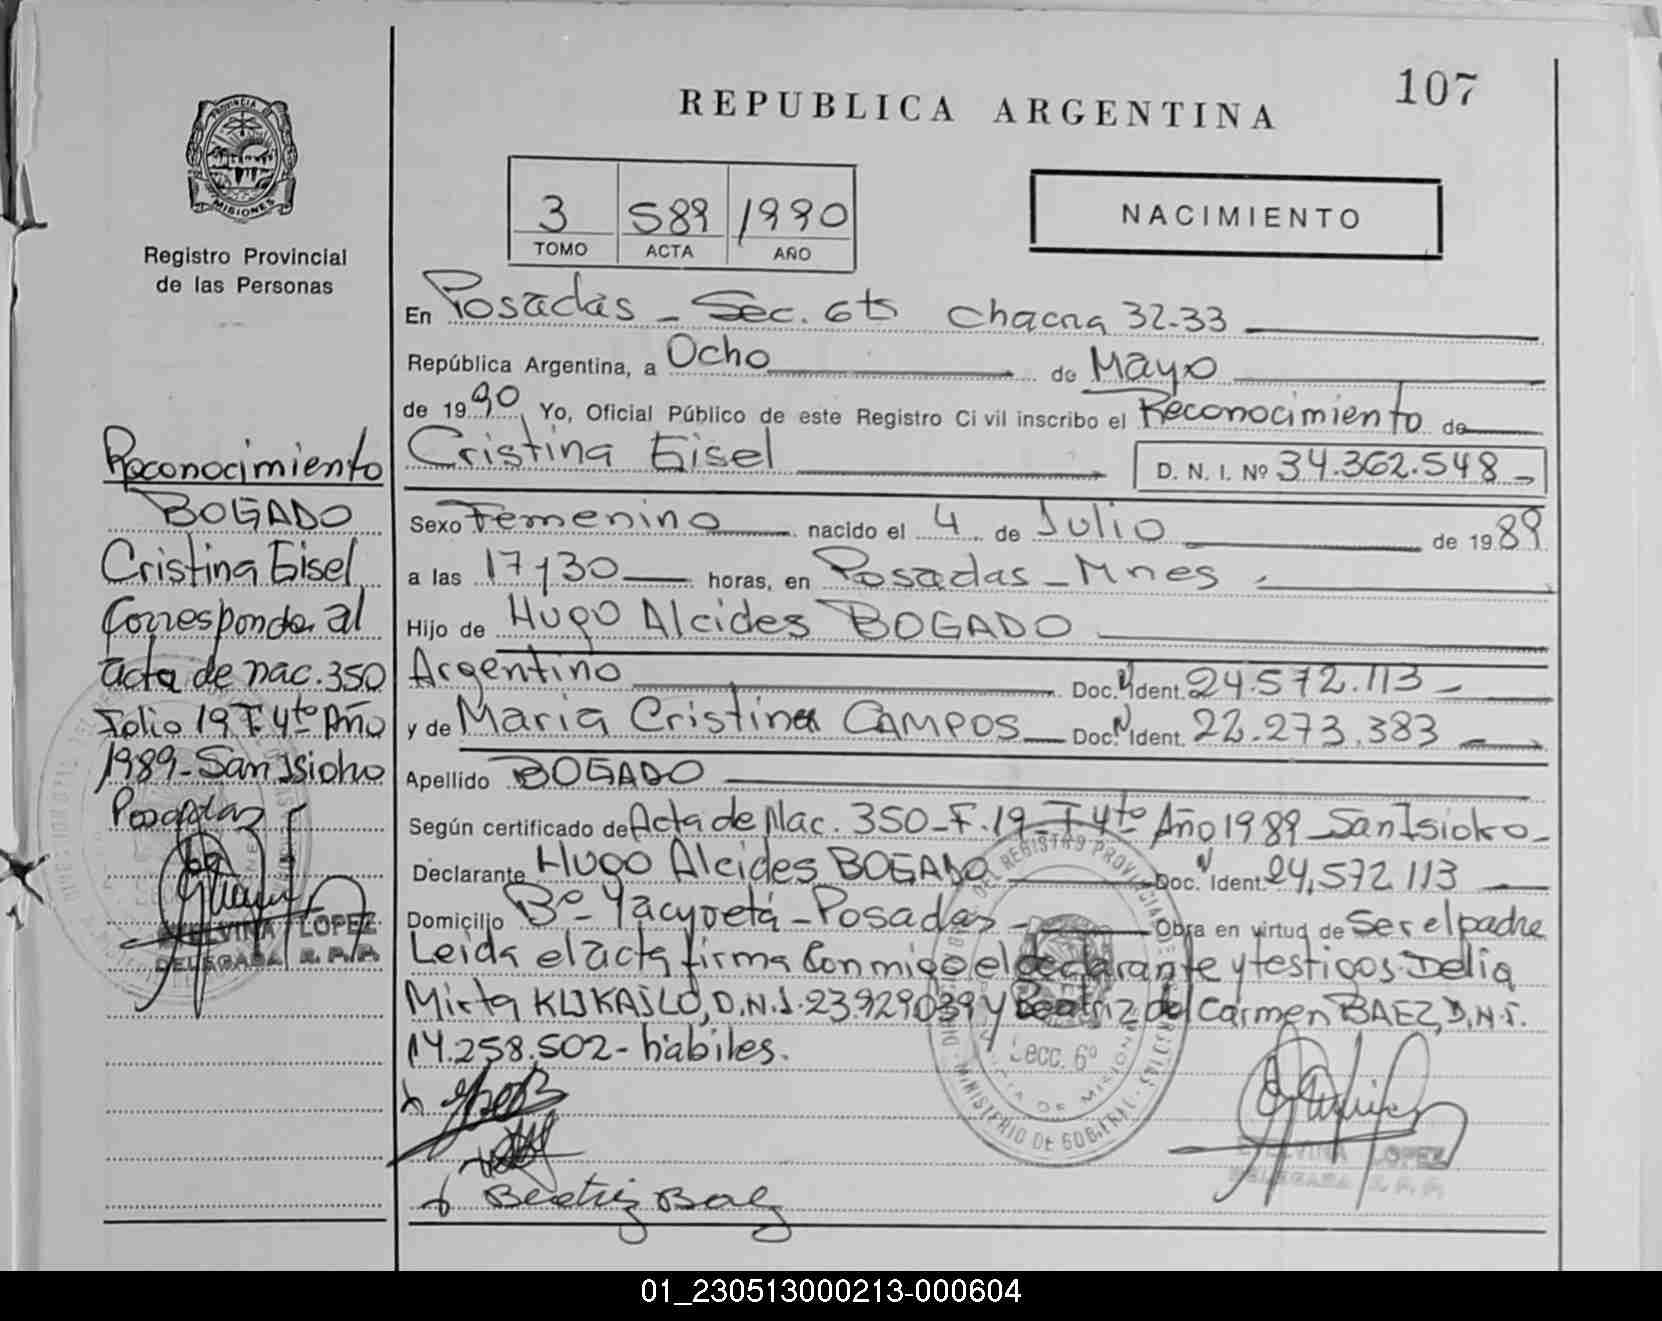 107
REPUBLICA ARGENTINA
PROVINCIA DE
MISIONES
Registro Provincial
de las Personas
3 589 1990
TOMO ACTA AÑO
NACIMIENTO
En Posadas - Sec. 6ta Chacra 32-33
República Argentina, a Ocho de Mayo
de 1990, Yo, Oficial Público de este Registro Civil inscribo el Reconocimiento de
Cristina Gisel D. N. I. Nº 34.362.548-
Sexo Femenino nacido el 4 de Julio de 1989
a las 17 y 30 horas, en Posadas - Mnes
Hijo de Hugo Alcides BOGADO
Argentino Doc. Ident. 24.572.113-
y de Maria Cristina CAMPOS Doc. Ident. 22.273.383
Apellido BOGADO
Según certificado de Acta de Nac. 350-F.19-T 4to Año 1989-San Isidro-
Declarante Hugo Alcides BOGADO Doc. Ident. 24,572 113
Domicilio Bº-Yacyretá-Posadas- Obra en virtud de Ser el padre
Leida el acta firma Conmigo el declarante y testigos Delia
Mirta KUKAILO, D.N.I. 23929039 y Beatriz del Carmen BAEZ, D.N.I.
14.258.502-habiles.
Beatriz Baez
Reconocimiento
BOGADO
Cristina Gisel
Corresponde al
acta de nac. 350
Folio 19 T. 4to Año
1989-San Isidro
Posadas
LOPEZ
DELEGADA R. P. P.
Secc. 6º
MINISTERIO DE GOBIERNO
LOPEZ
DELEGADA R. P. P.
01_230513000213-000604